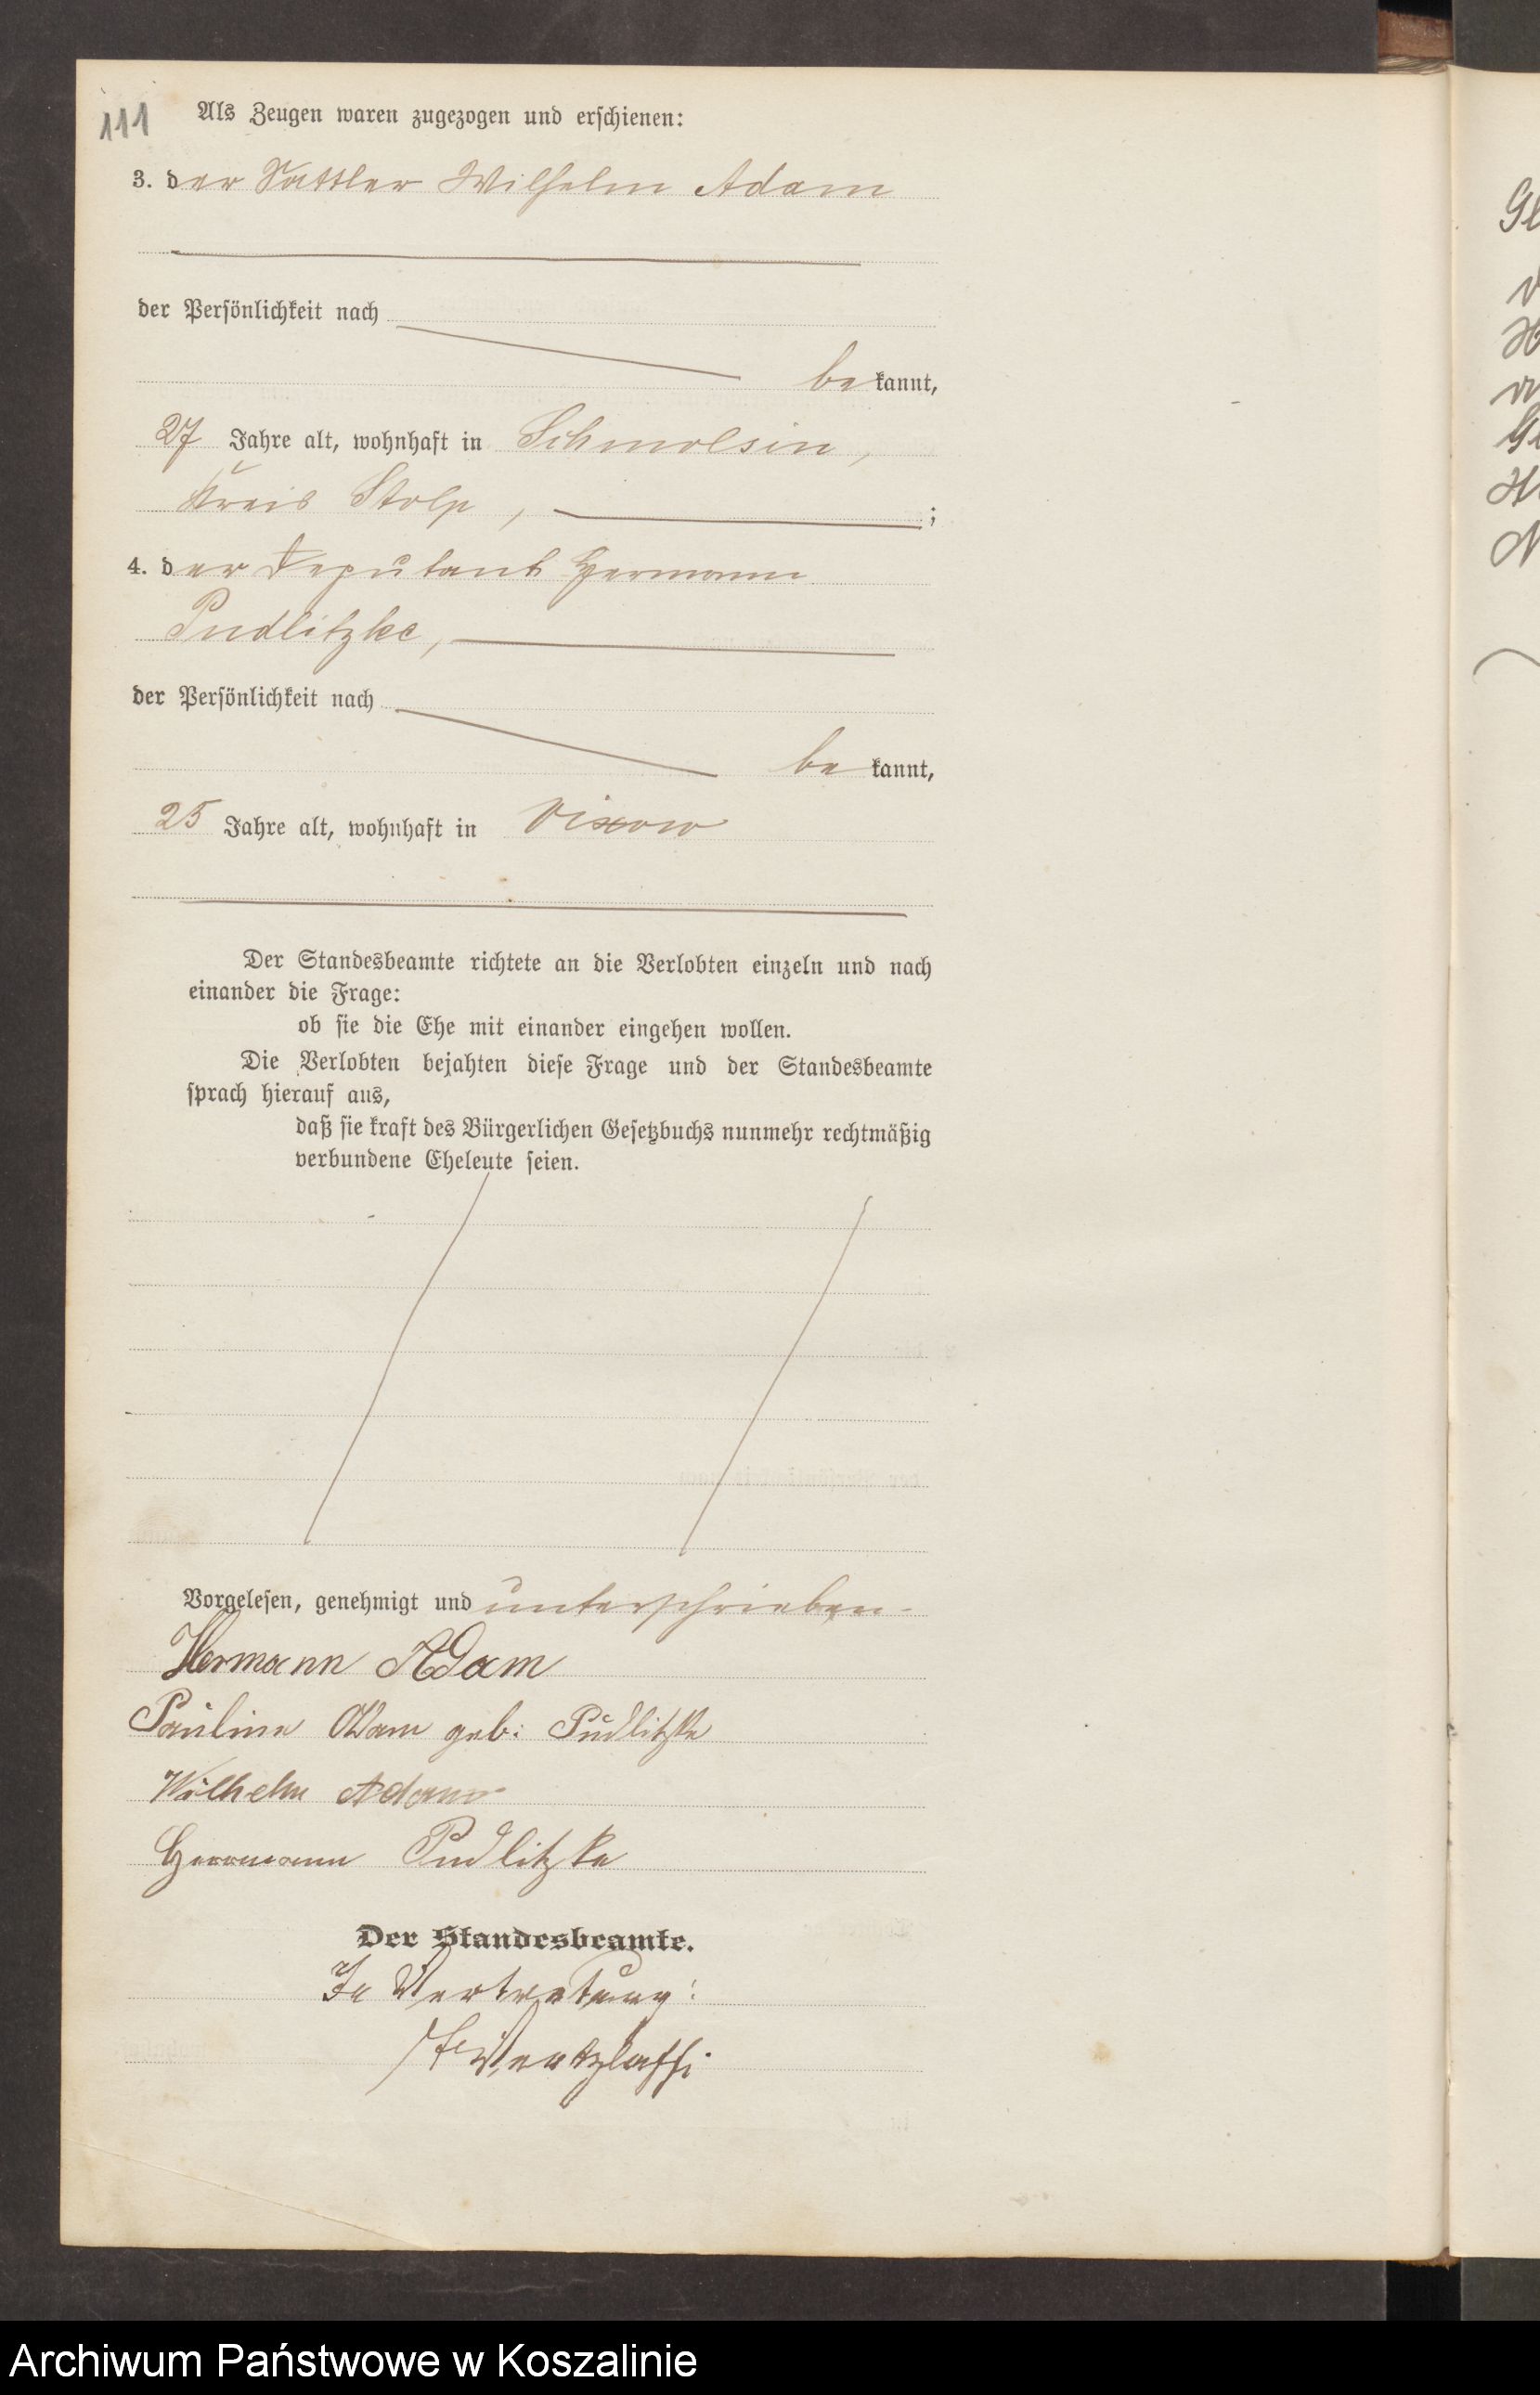 111
Als Zeugen waren zugezogen und erschienen:
3. der Sattler Wilhelm Adam
der Persönlichkeit nach
bekannt,
27 Jahre alt, wohnhaft in Schmolsin,
Kreis Stolp, ;
4. der Deputant Hermann
Pudlitzke,
der Persönlichkeit nach
bekannt,
25 Jahre alt, wohnhaft in Vixow
Der Standesbeamte richtete an die Verlobten einzeln und nach
einander die Frage:
ob sie die Ehe mit einander eingehen wollen.
Die Verlobten bejahten diese Frage und der Standesbeamte
sprach hierauf aus,
daß sie kraft des Bürgerlichen Gesetzbuchs nunmehr rechtmäßig
verbundene Eheleute seien.
Vorgelesen, genehmigt und unterschrieben
Hermann Adam
Pauline Adam geb: Pudlitzke
Wilhelm Adam
Herrmann Pudlitzke
Der Standesbeamte.
In Vertretung:
Archiwum Państwowe w Koszalinie